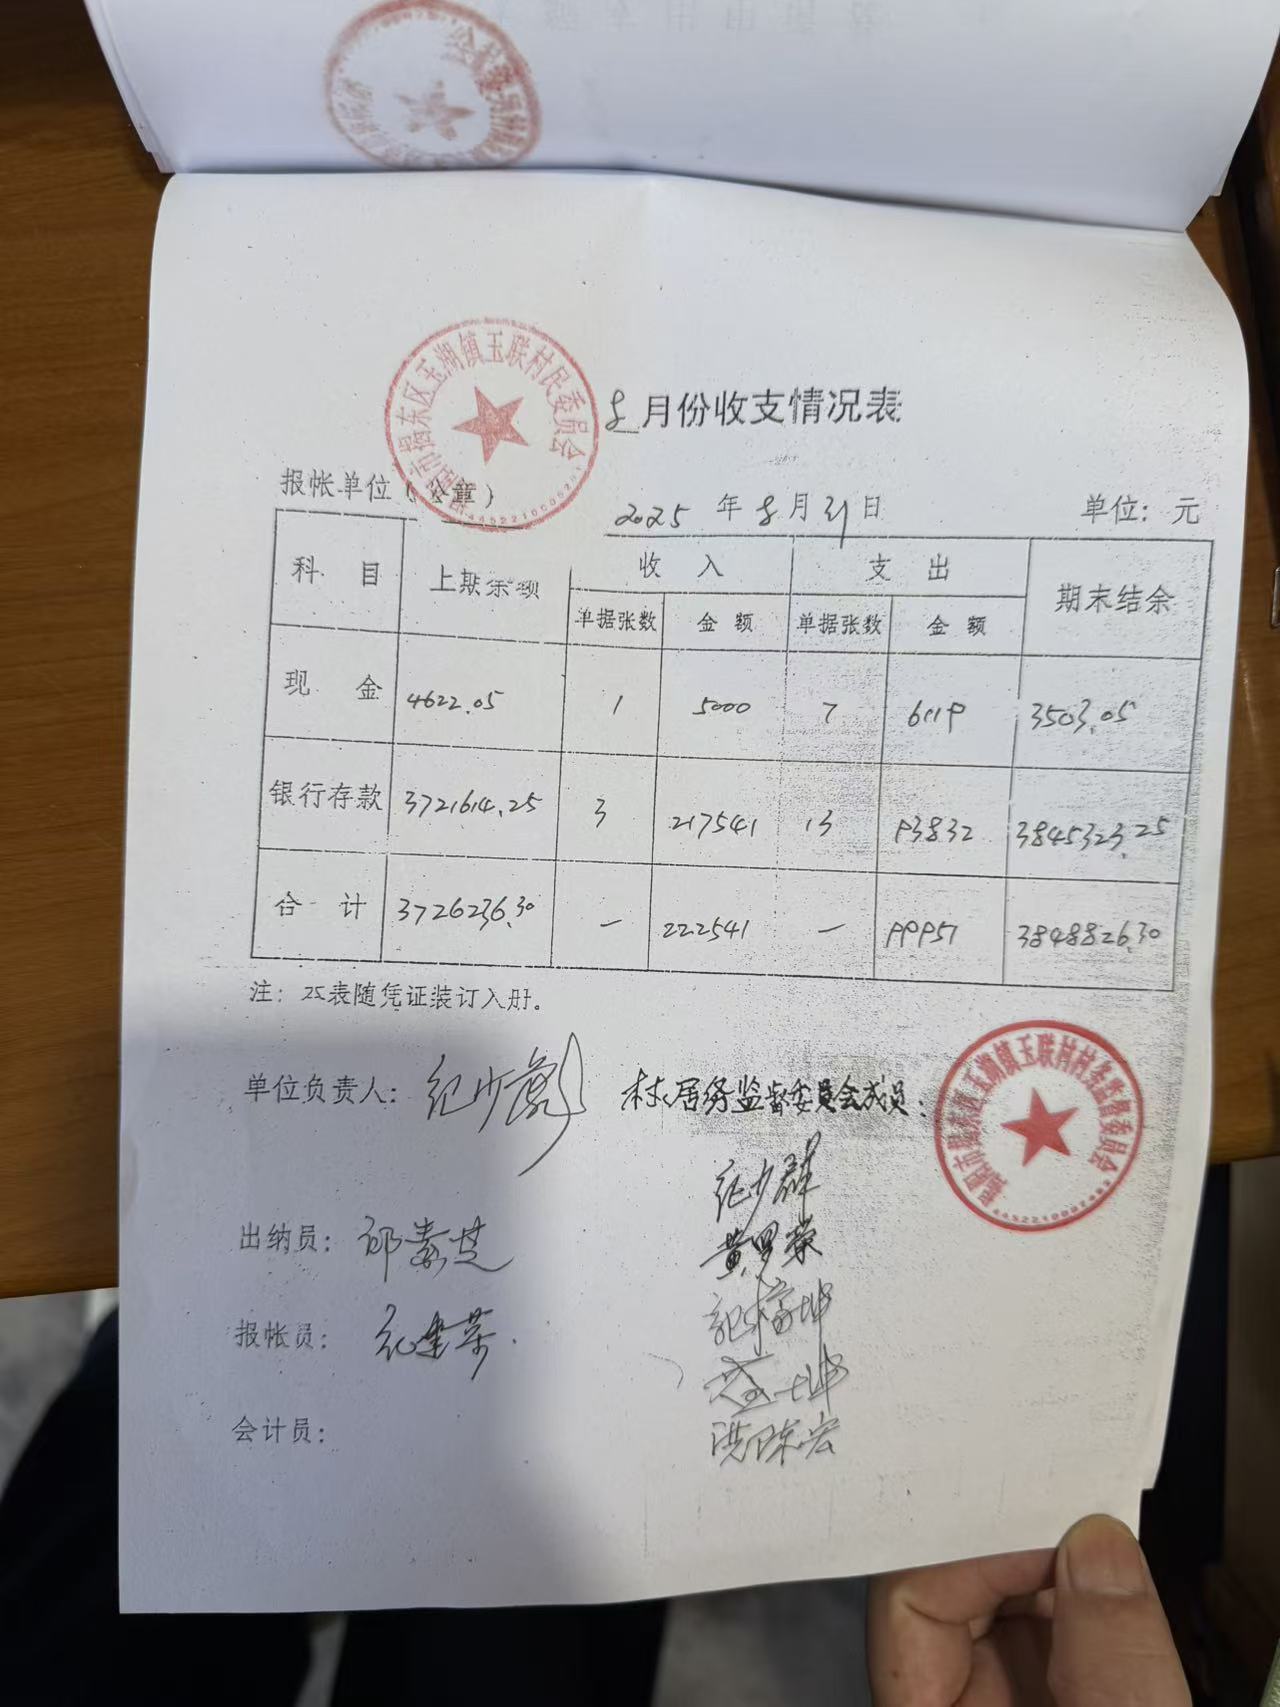 揭阳市揭东区玉湖镇玉联村民委员会
8月份收支情况表
报帐单位（公章） 2025年8月31日 单位：元
科目 上期余额 收入 支出 期末结余
单据张数 金额 单据张数 金额
现金 4622.05 1 5000 7 6119 3503.05
银行存款 3721614.25 3 217541 13 93832 3845323.25
合计 3726236.30 — 222541 — 99951 3848826.30
注：本表随凭证装订入册。
单位负责人：纪少 村居务监督委员会成员：
揭阳市揭东区玉湖镇玉联村村务监督委员会
纪少群
出纳员：邱素芝
黄罗荣
报帐员：纪建荣
会计员：
洪陈宏